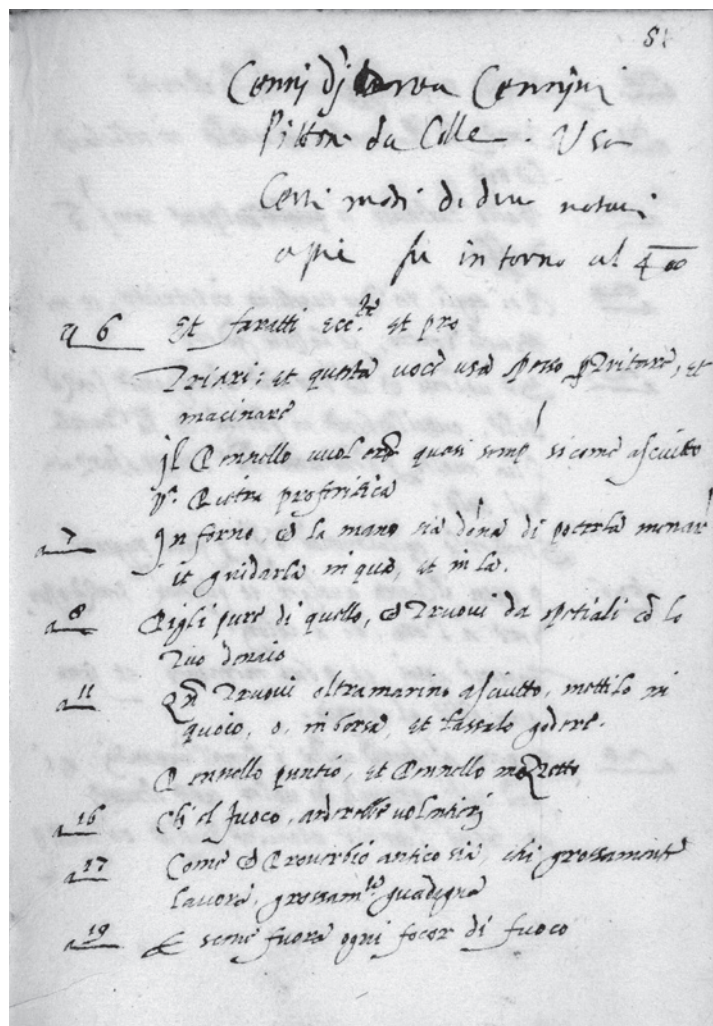 Cennj dj Cennjni
Pittore da Colle. Usa
Certi modi di dire notevoli
fu intorno al 400
a 6 Et faratti ecc.te et pro
Triari: et questa voce usa per tritare, et
macinare
Jl Pennello vuol quasi semp sicome asciutto
Pietra profiritica
a 7 Jn forno la mano sia di poterla menar
et guidarla in qua, et in la.
a 8 Pigli pure di quello, truovi da spetiali lo
tuo denaio
a 11 truovi oltramarino asciutto, mettilo in
quoio, o, in borsa, et lassalo godere.
Pennello puntio, et Pennello mozzetto
a 16 Ch'el fuoco, arderebbe volentierj
a 17 Come Proverbio antico sia, chi grossamente
lavora, grossam.te guadagna
a 19 E seme fuora ogni focor di fuoco